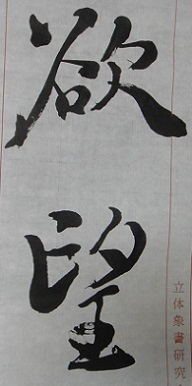 欲望
立体象書研究